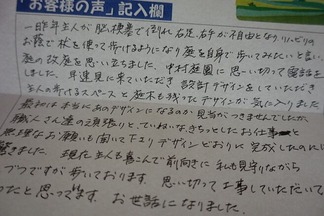 「お客様の声」記入欄
一昨年主人が脳梗塞で倒れ右足、右手が不自由となりリハビリの
お蔭で杖を使って歩けるようになり庭を自身で歩いてみたいと言い
庭の改庭を思い立ちました。中村庭園に思い切って電話を
しました。早速見に来ていただき設計デザインをしていただき
主人の歩けるスペースと庭木も残ったデザインが気に入りました
最初は本当にあのデザインになるのか見当がつきませんでしたが、
職人さん達の頑張りと、ていねいなきちっとしたお仕事
無理なお願いも聞いて下さりデザインどおりに完成したのには
驚きました。現在主人も喜んで前向きに私も見守りながら
づつですが歩いております。思い切って工事していただいて
ったと思ってます。お世話になりました。